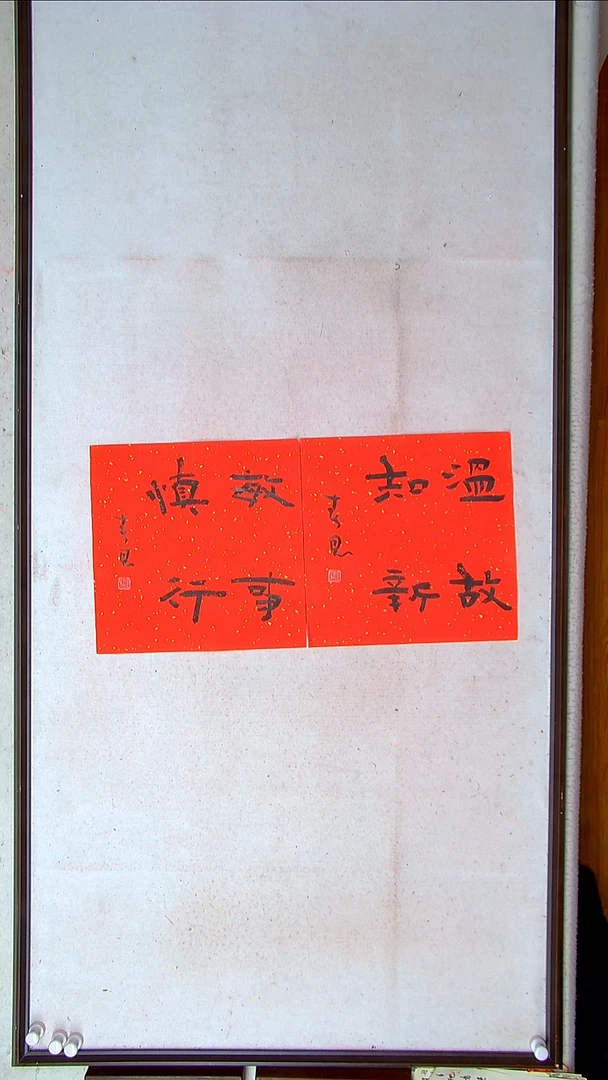 温故
知新
敏事
慎行